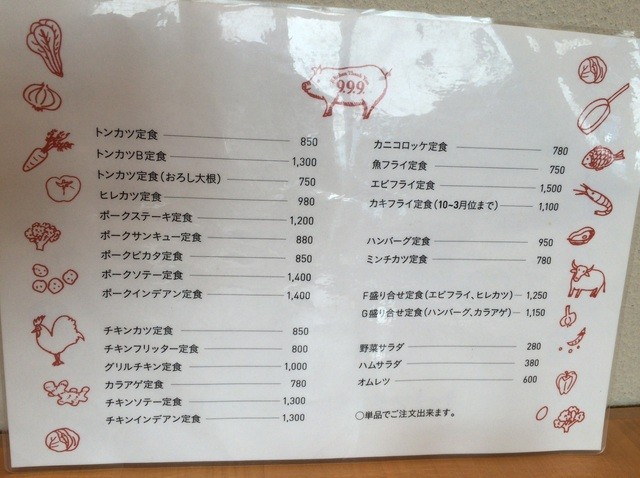 9.9.9.
トンカツ定食 850
トンカツB定食 1,300
トンカツ定食(おろし大根) 750
ヒレカツ定食 980
ポークステーキ定食 1,200
ポークサンキュー定食 880
ポークピカタ定食 850
ポークソテー定食 1,400
ポークインデアン定食 1,400
チキンカツ定食 850
チキンフリッター定食 800
グリルチキン定食 1,000
カラアゲ定食 780
チキンソテー定食 1,300
チキンインデアン定食 1,300
カニコロッケ定食 780
魚フライ定食 750
エビフライ定食 1,500
カキフライ定食(10~3月位まで) 1,100
ハンバーグ定食 950
ミンチカツ定食 780
F盛り合せ定食(エビフライ、ヒレカツ) 1,250
G盛り合せ定食(ハンバーグ、カラアゲ) 1,150
野菜サラダ 280
ハムサラダ 380
オムレツ 600
○単品でご注文出来ます。